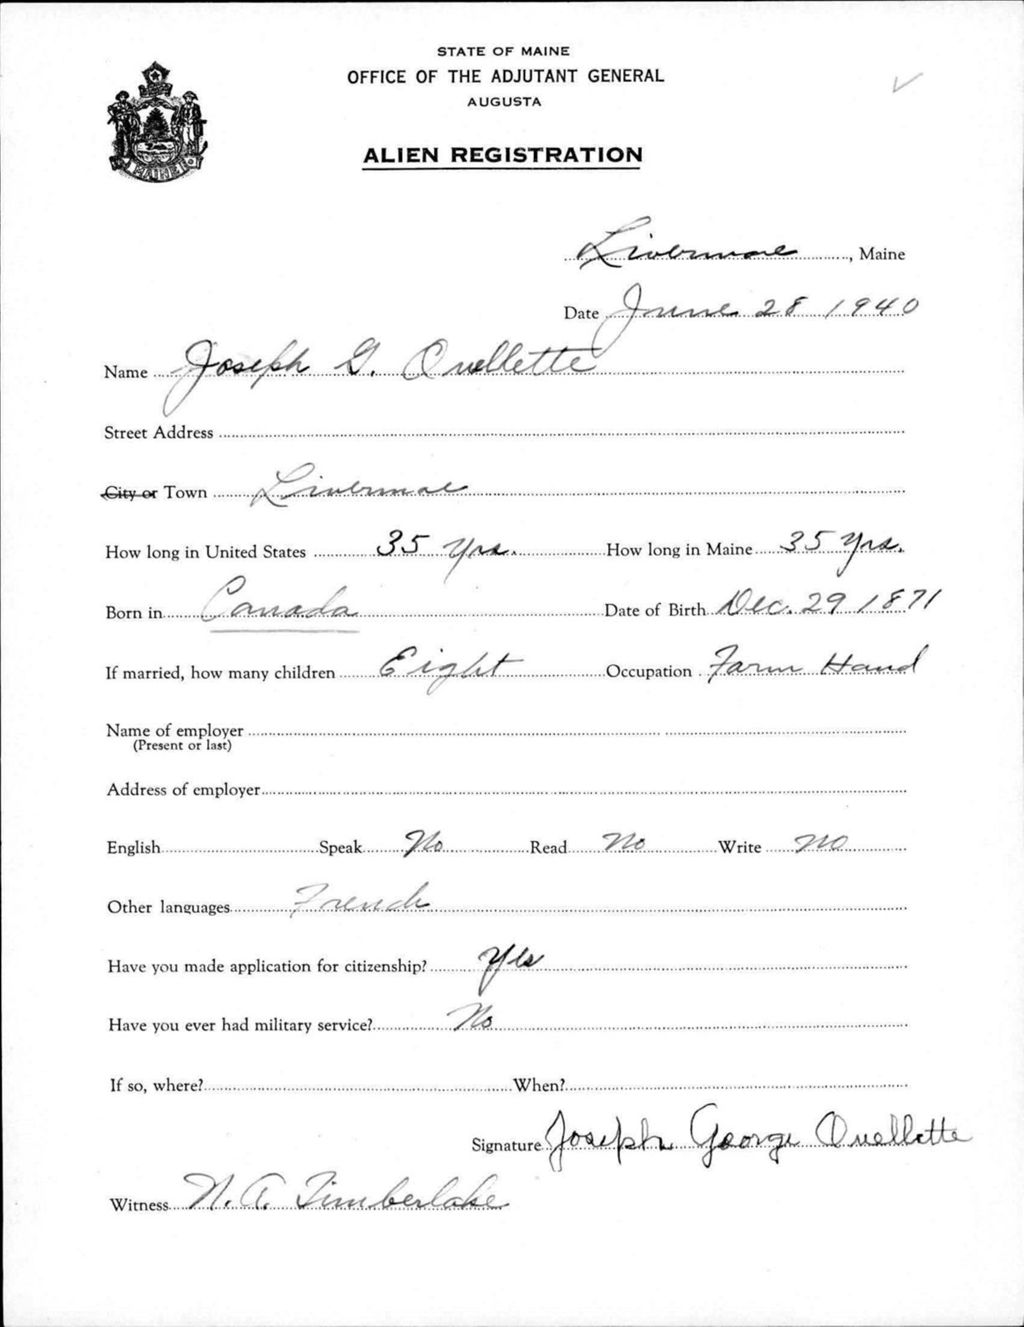 STATE OF MAINE
OFFICE OF THE ADJUTANT GENERAL
AUGUSTA
ALIEN REGISTRATION
MAINE
Livermore, Maine
Date June 28 1940
Name Joseph G. Ouellette
Street Address
City or Town Livermore
How long in United States 35 yrs. How long in Maine 35 yrs.
Born in Canada Date of Birth Dec. 29 1871
If married, how many children Eight Occupation Farm Hand
Name of employer
(Present or last)
Address of employer
English Speak No Read No Write No
Other languages French
Have you made application for citizenship? Yes
Have you ever had military service? No
If so, where? When?
Signature Joseph George Ouellette
Witness N. A. Timberlake